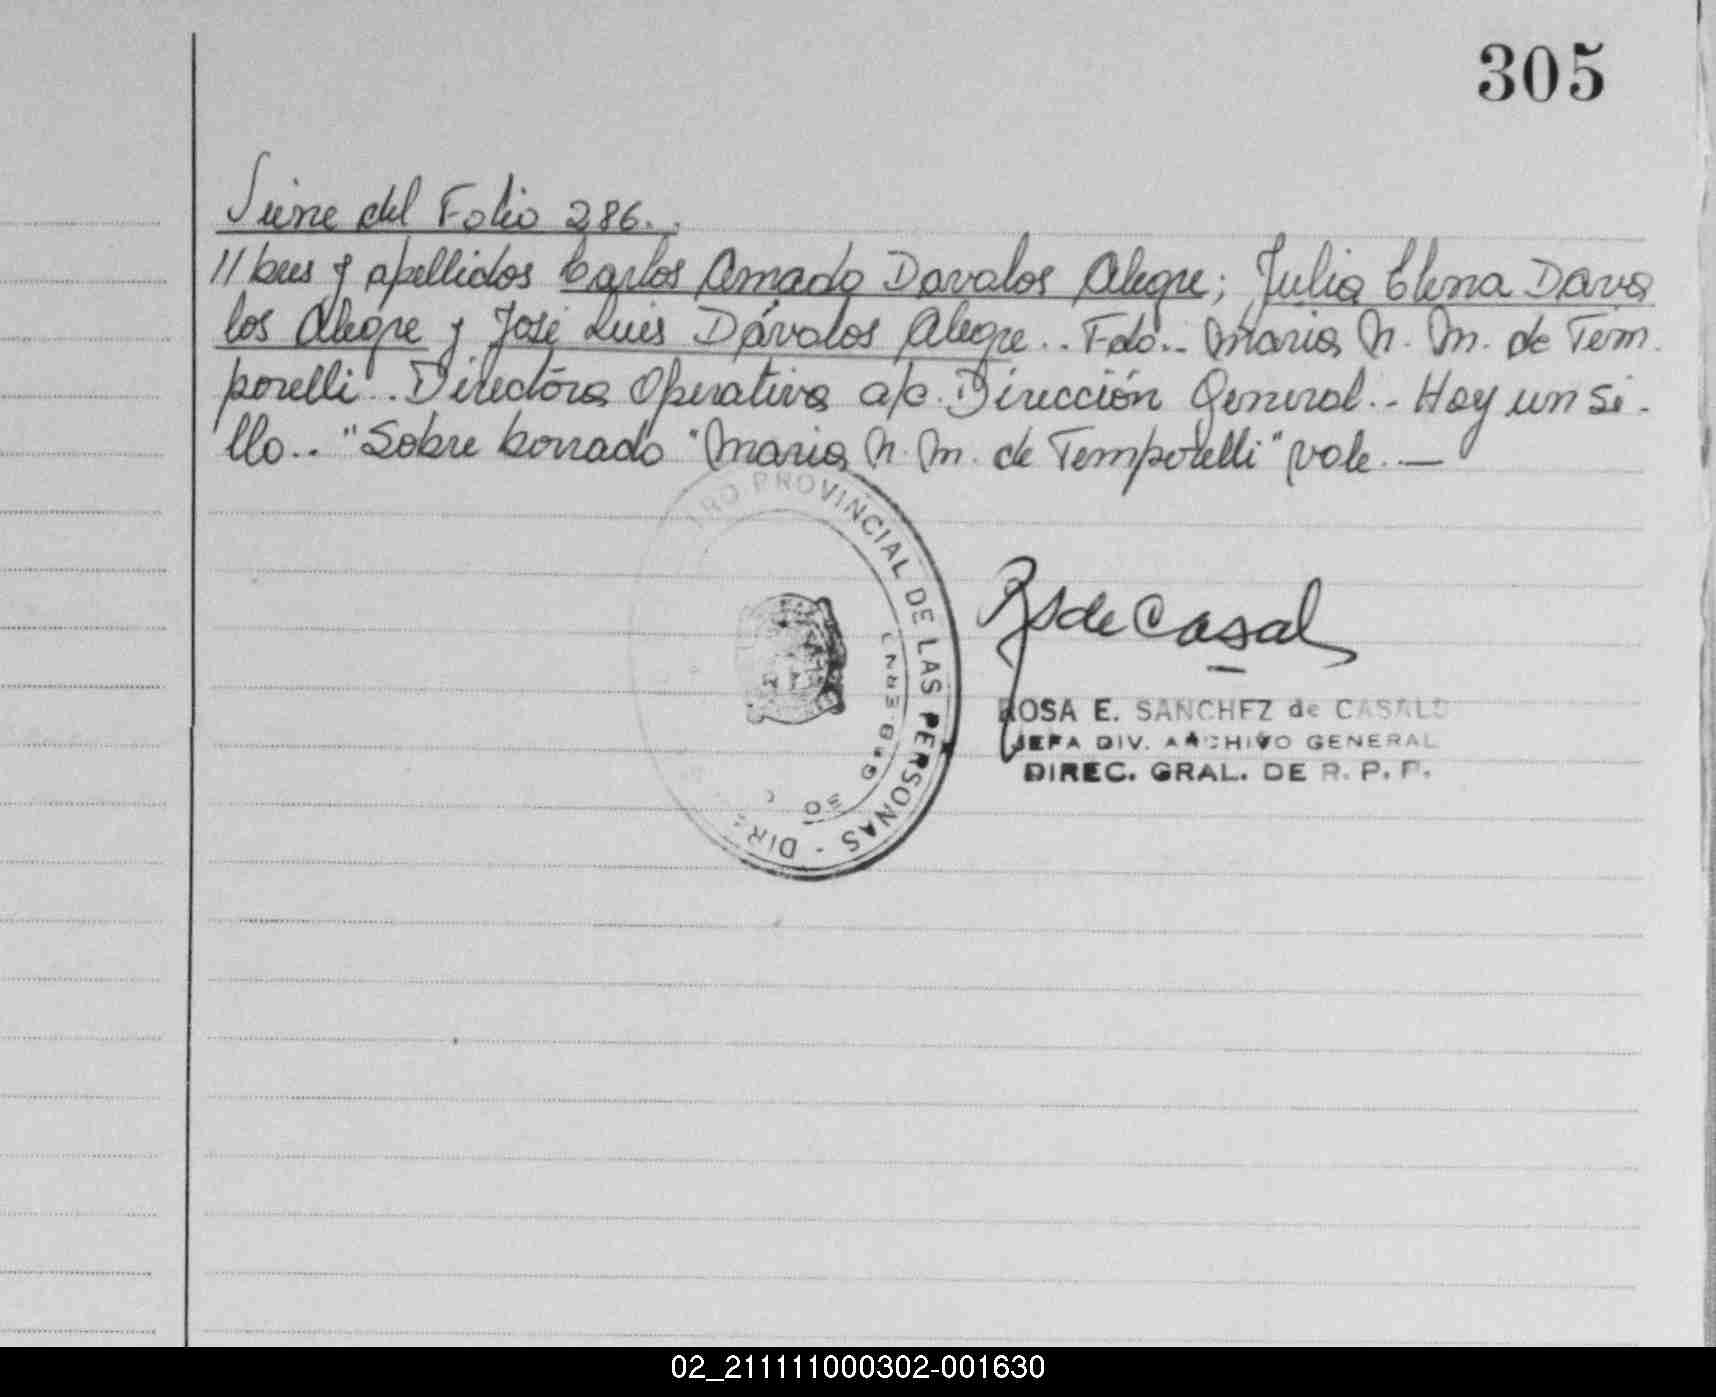 305
Viene del Folio 286..
//bres y apellidos Carlos Amado Davalos Alegre; Julia Elena Dava
los Alegre y José Luis Dávalos Alegre.. Fdo.. Maria N. M. de Tem.
porelli.. Directora Operativa a/c. Dirección General.. Hay un se.
llo.. "Sobre borrado "Maria N. M. de Temporelli" vale.. —
PROVINCIAL DE LAS PERSONAS - DIR
RS de Casal
ROSA E. SANCHEZ de CASAL
JEFA DIV. ARCHIVO GENERAL
DIREC. GRAL. DE R. P. P.
02_211111000302-001630